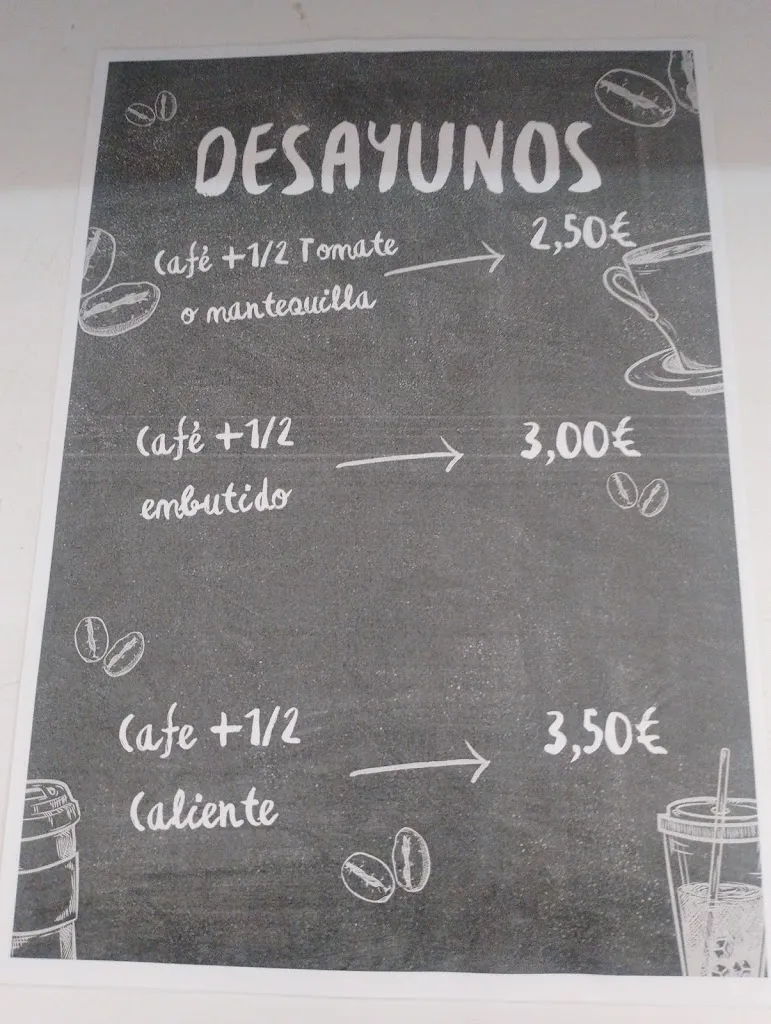 DESAYUNOS
Café +1/2 Tomate
o mantequilla
2,50€
Café +1/2
embutido
3,00€
Cafe +1/2
Caliente
3,50€